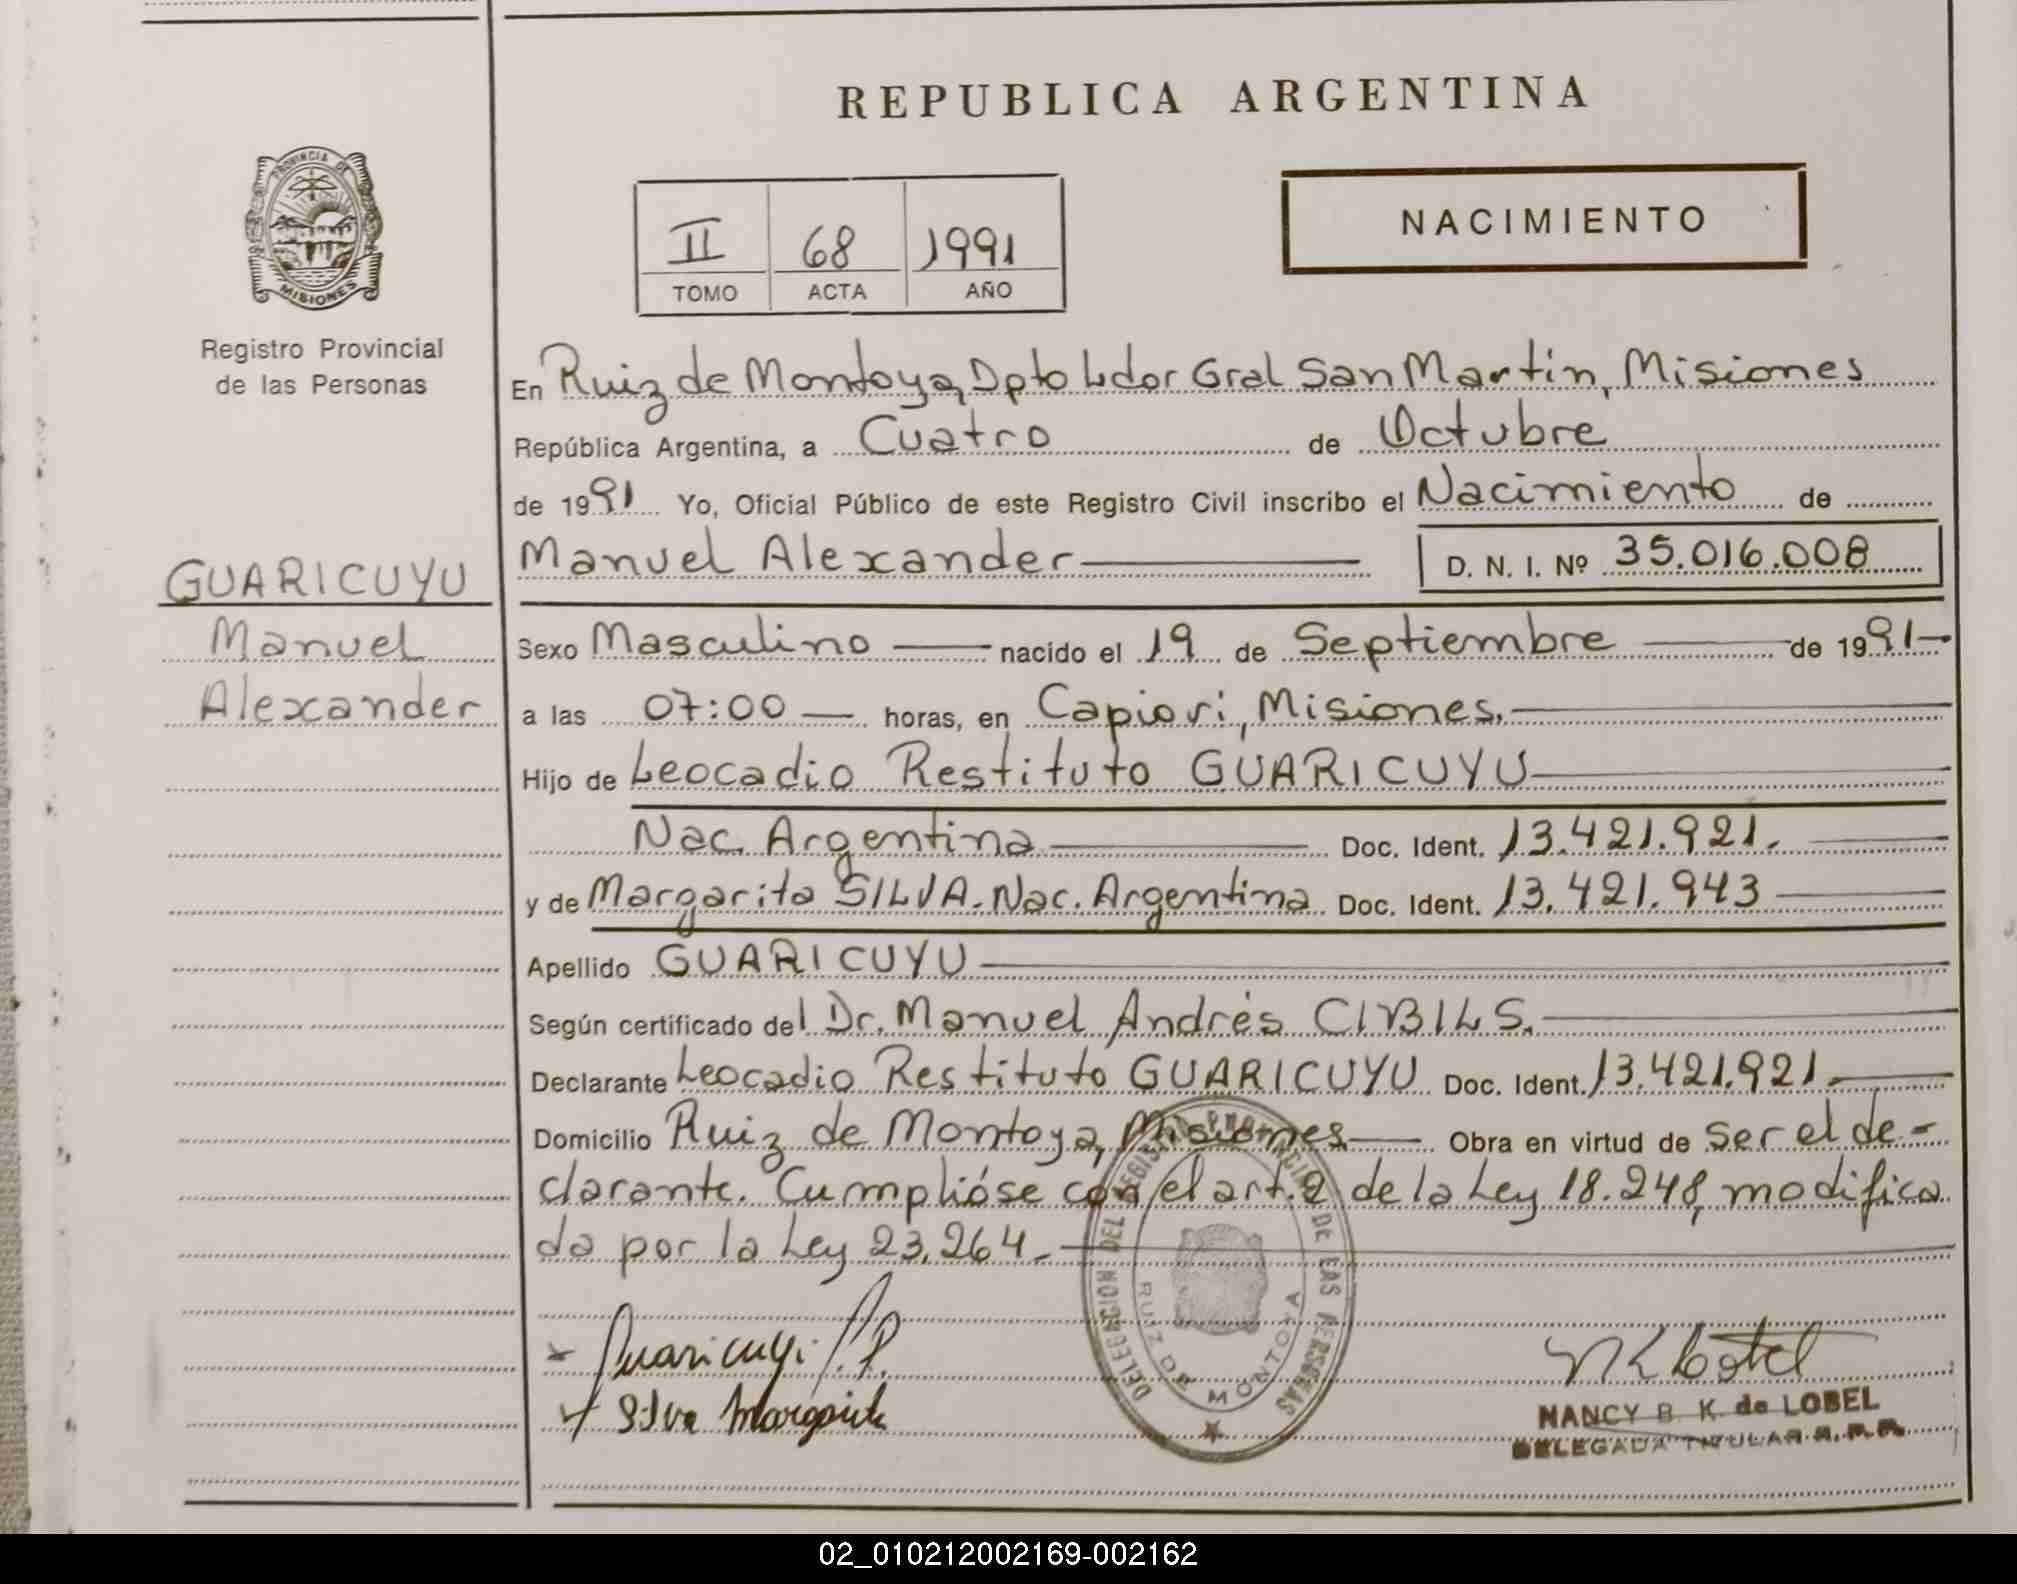 REPUBLICA ARGENTINA
PROVINCIA DE MISIONES
Registro Provincial
de las Personas
II 68 1991
TOMO ACTA AÑO
NACIMIENTO
En Ruiz de Montoya, Dpto Ldor Gral San Martín, Misiones
República Argentina, a Cuatro de Octubre
de 1991 Yo, Oficial Público de este Registro Civil inscribo el Nacimiento de
Manuel Alexander D. N. I. Nº 35.016.008
GUARICUYU
Manuel
Alexander
Sexo Masculino nacido el 19 de Septiembre de 1991
a las 07:00 horas, en Capiovi, Misiones.
Hijo de Leocadio Restituto GUARICUYU
Nac. Argentina Doc. Ident. 13.421.921.
y de Margarita SILVA. Nac. Argentina Doc. Ident. 13.421.943
Apellido GUARICUYU
Según certificado del Dr. Manuel Andrés CIBILS.
Declarante Leocadio Restituto GUARICUYU Doc. Ident. 13.421.921.
Domicilio Ruiz de Montoya, Misiones Obra en virtud de ser el de-
clarante. Cumplióse con el art. 2 de la Ley 18.248, modifica
da por la Ley 23.264.
DELEGACION DEL REGISTRO PROVINCIAL DE LAS PERSONAS
RUIZ DE MONTOYA
Guaricuyi
Silva Margarita
NANCY B. K. de LOBEL
DELEGADA TITULAR R. P. P.
02_010212002169-002162